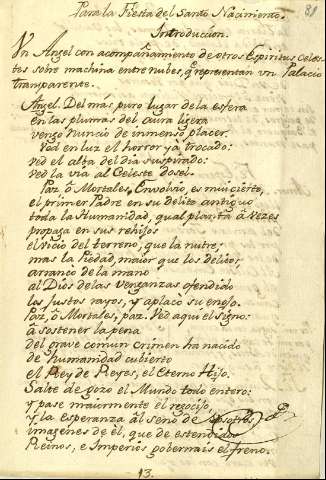 Para la Fiesta del Santo Nacimiento.
Introduccion.
Un Angel con acompañamiento de otros Espiritus Celes-
tes sobre machina entre nubes, q̃ representan vn Palacio
transparente.
Angel. Del más puro lugar de la esfera
en las plumas del aura ligera
vengo Nuncio de inmenso placer.
Ved en luz el horror yà trocado:
ved el alba del dia suspirado:
ved la via al Celeste dosel.
Paz, ô Mortales. Envolviò, es mui cierto,
el primer Padre en su delito antiguo
toda la Humanidad, qual planta â vezes
propaga en sus rehijos
el vicio del terreno, que la nutre,
mas la Piedad, maior que los delitos,
arrancò de la mano
al Dios de las venganzas ofendido
los justos rayos, y aplacò su enojo.
Paz, ô Mortales, paz. Ved aqui el signo:
â sostener la pena
del grave comun crimen ha nacido
de humanidad cubierto
el Rey de Reyes, el Eterno Hijo.
Salte de gozo el Mundo todo entero:
y pase maiormente el regocijo,
y la esperanza al seno de vosotros
imagenes de èl, que de estendidos
Reinos, e Imperios gobernais el freno.
13.